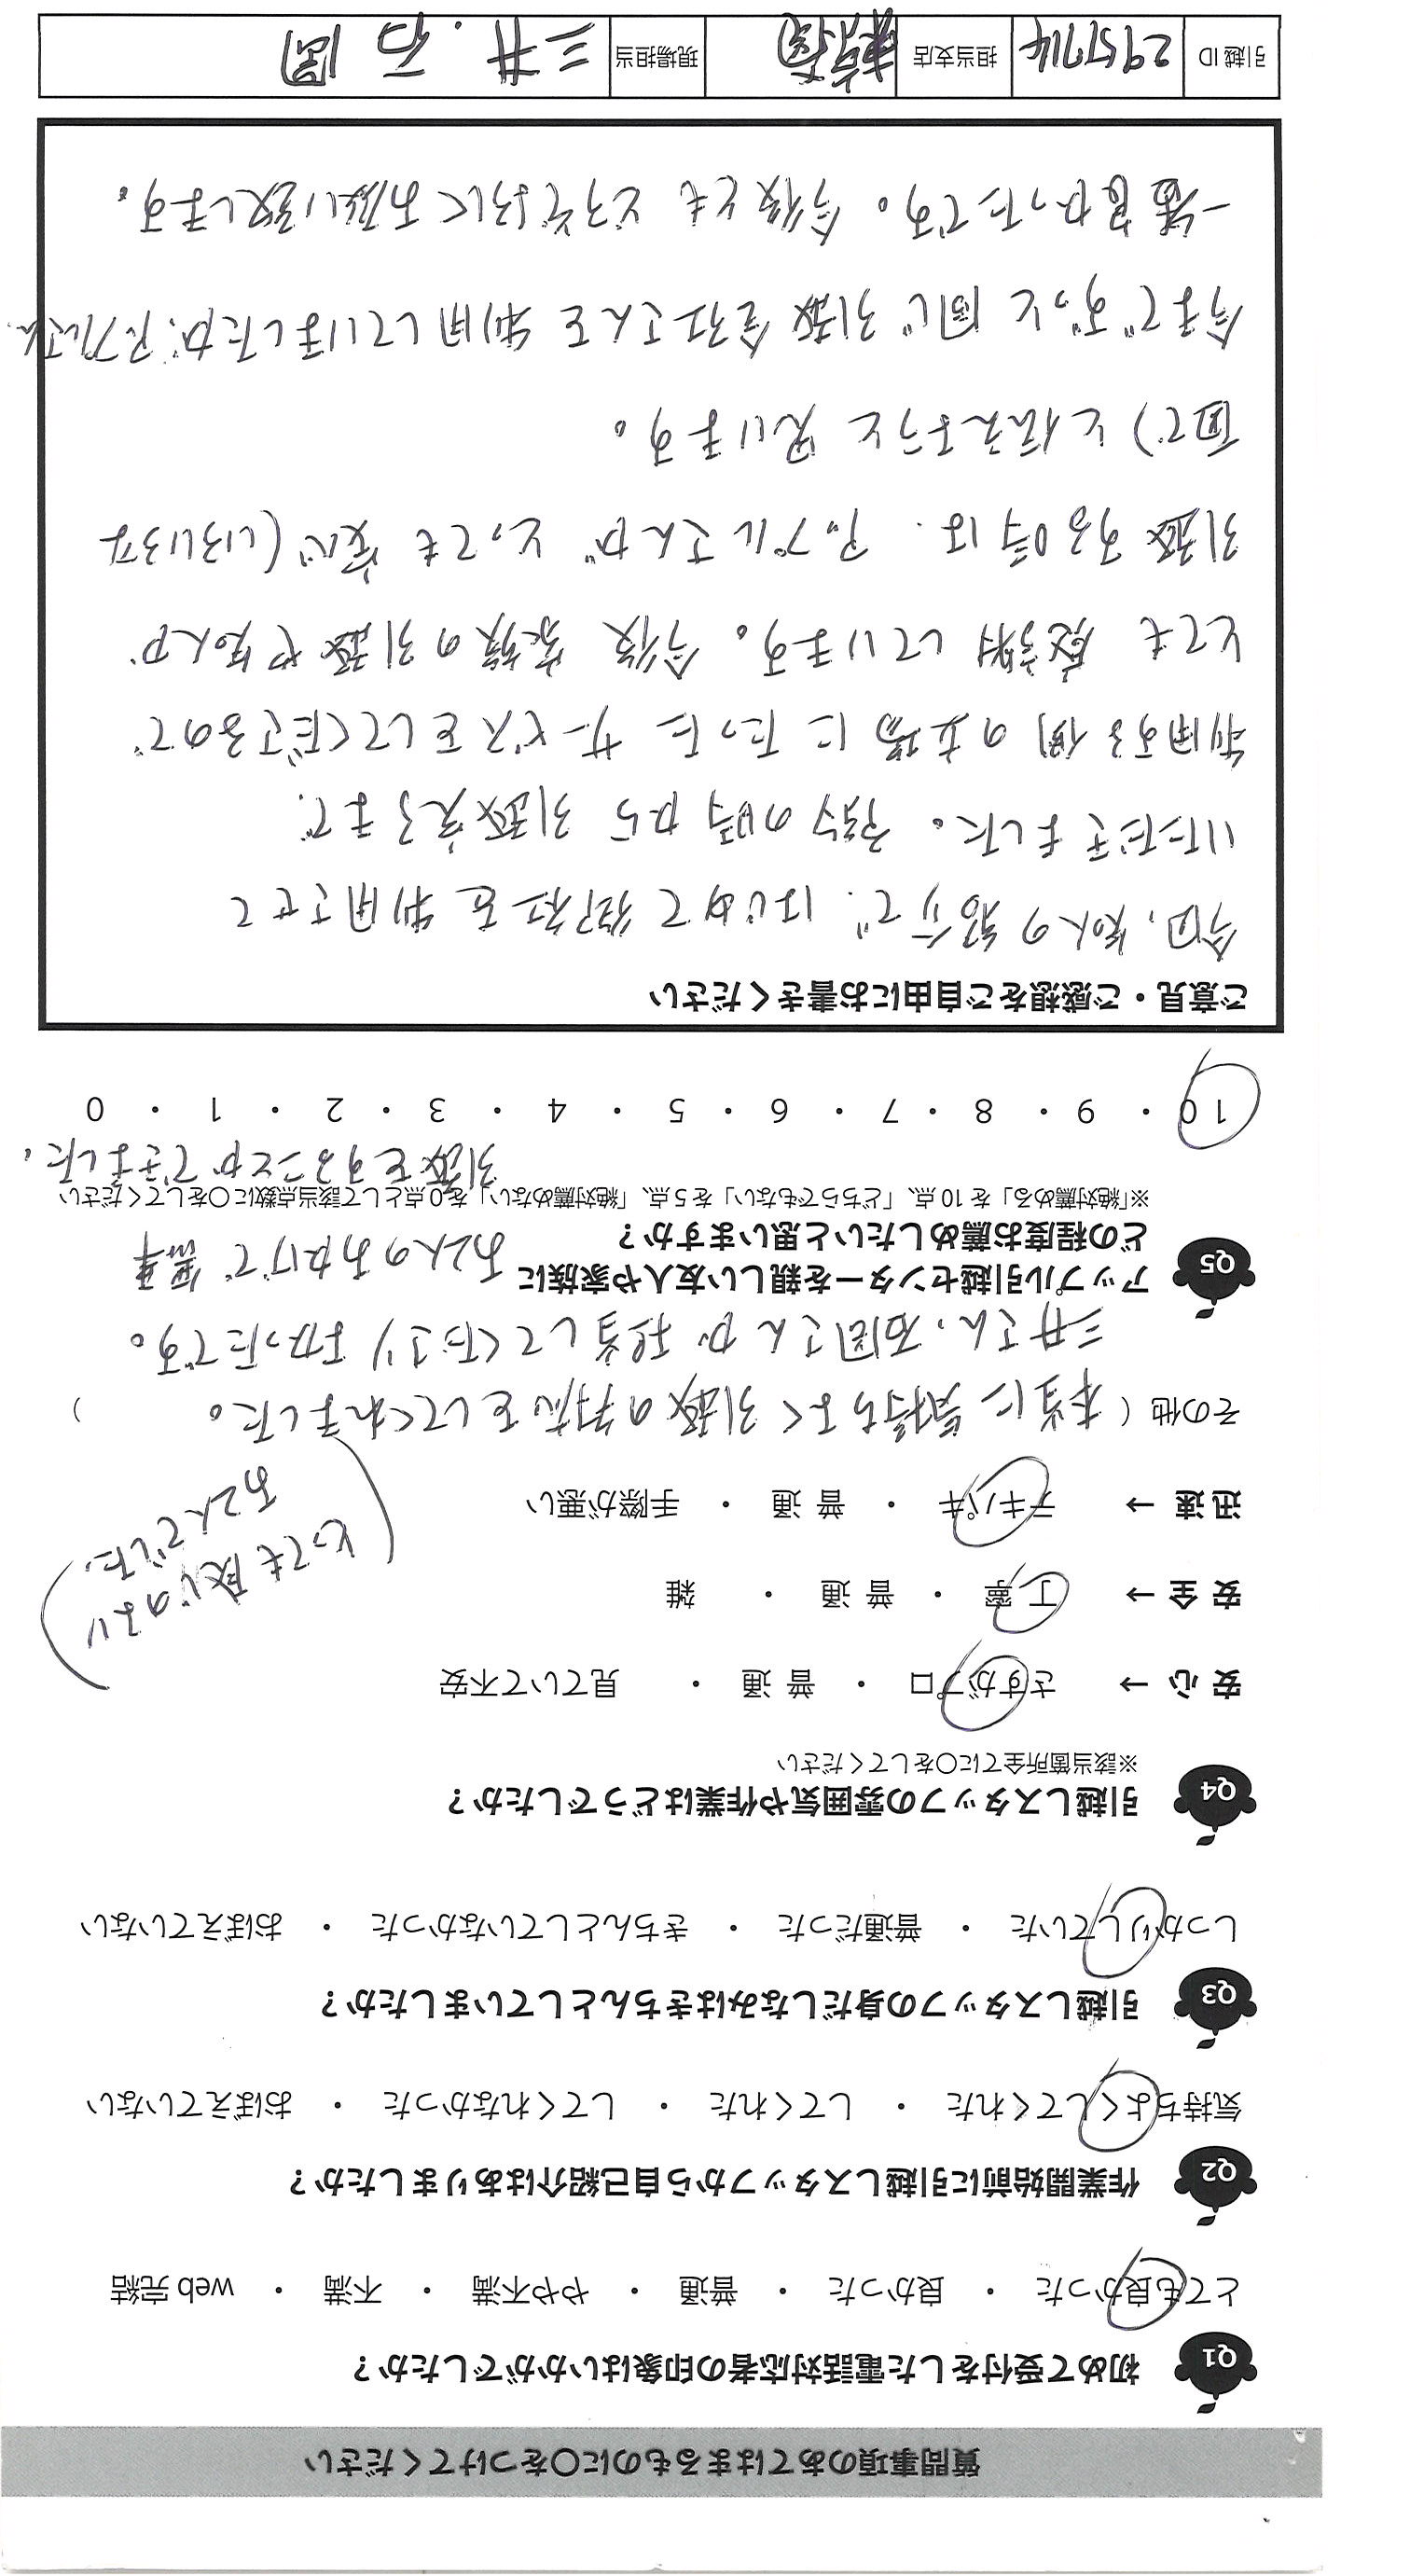 質問事項のあてはまるものに〇をつけてください
Q1 初めて受付をした電話対応者の印象はいかがでしたか？
とても良かった ・ 良かった ・ 普通 ・ やや不満 ・ 不満 ・ web 完結
Q2 作業開始前に引越しスタッフから自己紹介はありましたか？
気持ちよくしてくれた ・ してくれた ・ してくれなかった ・ おぼえていない
Q3 引越しスタッフの身だしなみはきちんとしていましたか？
しっかりしていた ・ 普通だった ・ きちんとしていなかった ・ おぼえていない
Q4 引越しスタッフの雰囲気や作業はどうでしたか？
※該当箇所全てに〇をしてください
安 心 → さすがプロ ・ 普 通 ・ 見ていて不安
安 全 → 丁 寧 ・ 普 通 ・ 雑
迅 速 → テキパキ ・ 普 通 ・ 手際が悪い
(とっても感じのよい
お2人でした。)
その他 ( 本当に気持ちよく引越の対応をしてくれました。 )
三井さん、石岡さんが担当してくださりよかったです。
お2人のおかげで無事
引越をすることができました。
Q5 アップル引越センターを親しい友人や家族に
どの程度お薦めしたいと思いますか？
※「絶対薦める」を 10 点、「どちらでもない」を 5 点、「絶対薦めない」を 0 点として該当点数に〇をしてください
10 ・ 9 ・ 8 ・ 7 ・ 6 ・ 5 ・ 4 ・ 3 ・ 2 ・ 1 ・ 0
ご意見・ご感想をご自由にお書きください
今回、知人の紹介で、はじめて御社を利用させて
いただきました。予約の時から引越完了まで、
利用する側の立場にたったサービスをしてくださるので
とても感謝しています。今後家族の引越や知人が
引越する時は、アップルさんがとっても安心(いろいろな
面で)と伝えようと思います。
今までずっと同じ引越会社さんを利用していましたが、アップルさん
一番良かったです。今後ともどうぞよろしくお願い致します。
引越 ID 295714 担当支店 現場担当 三井．石岡